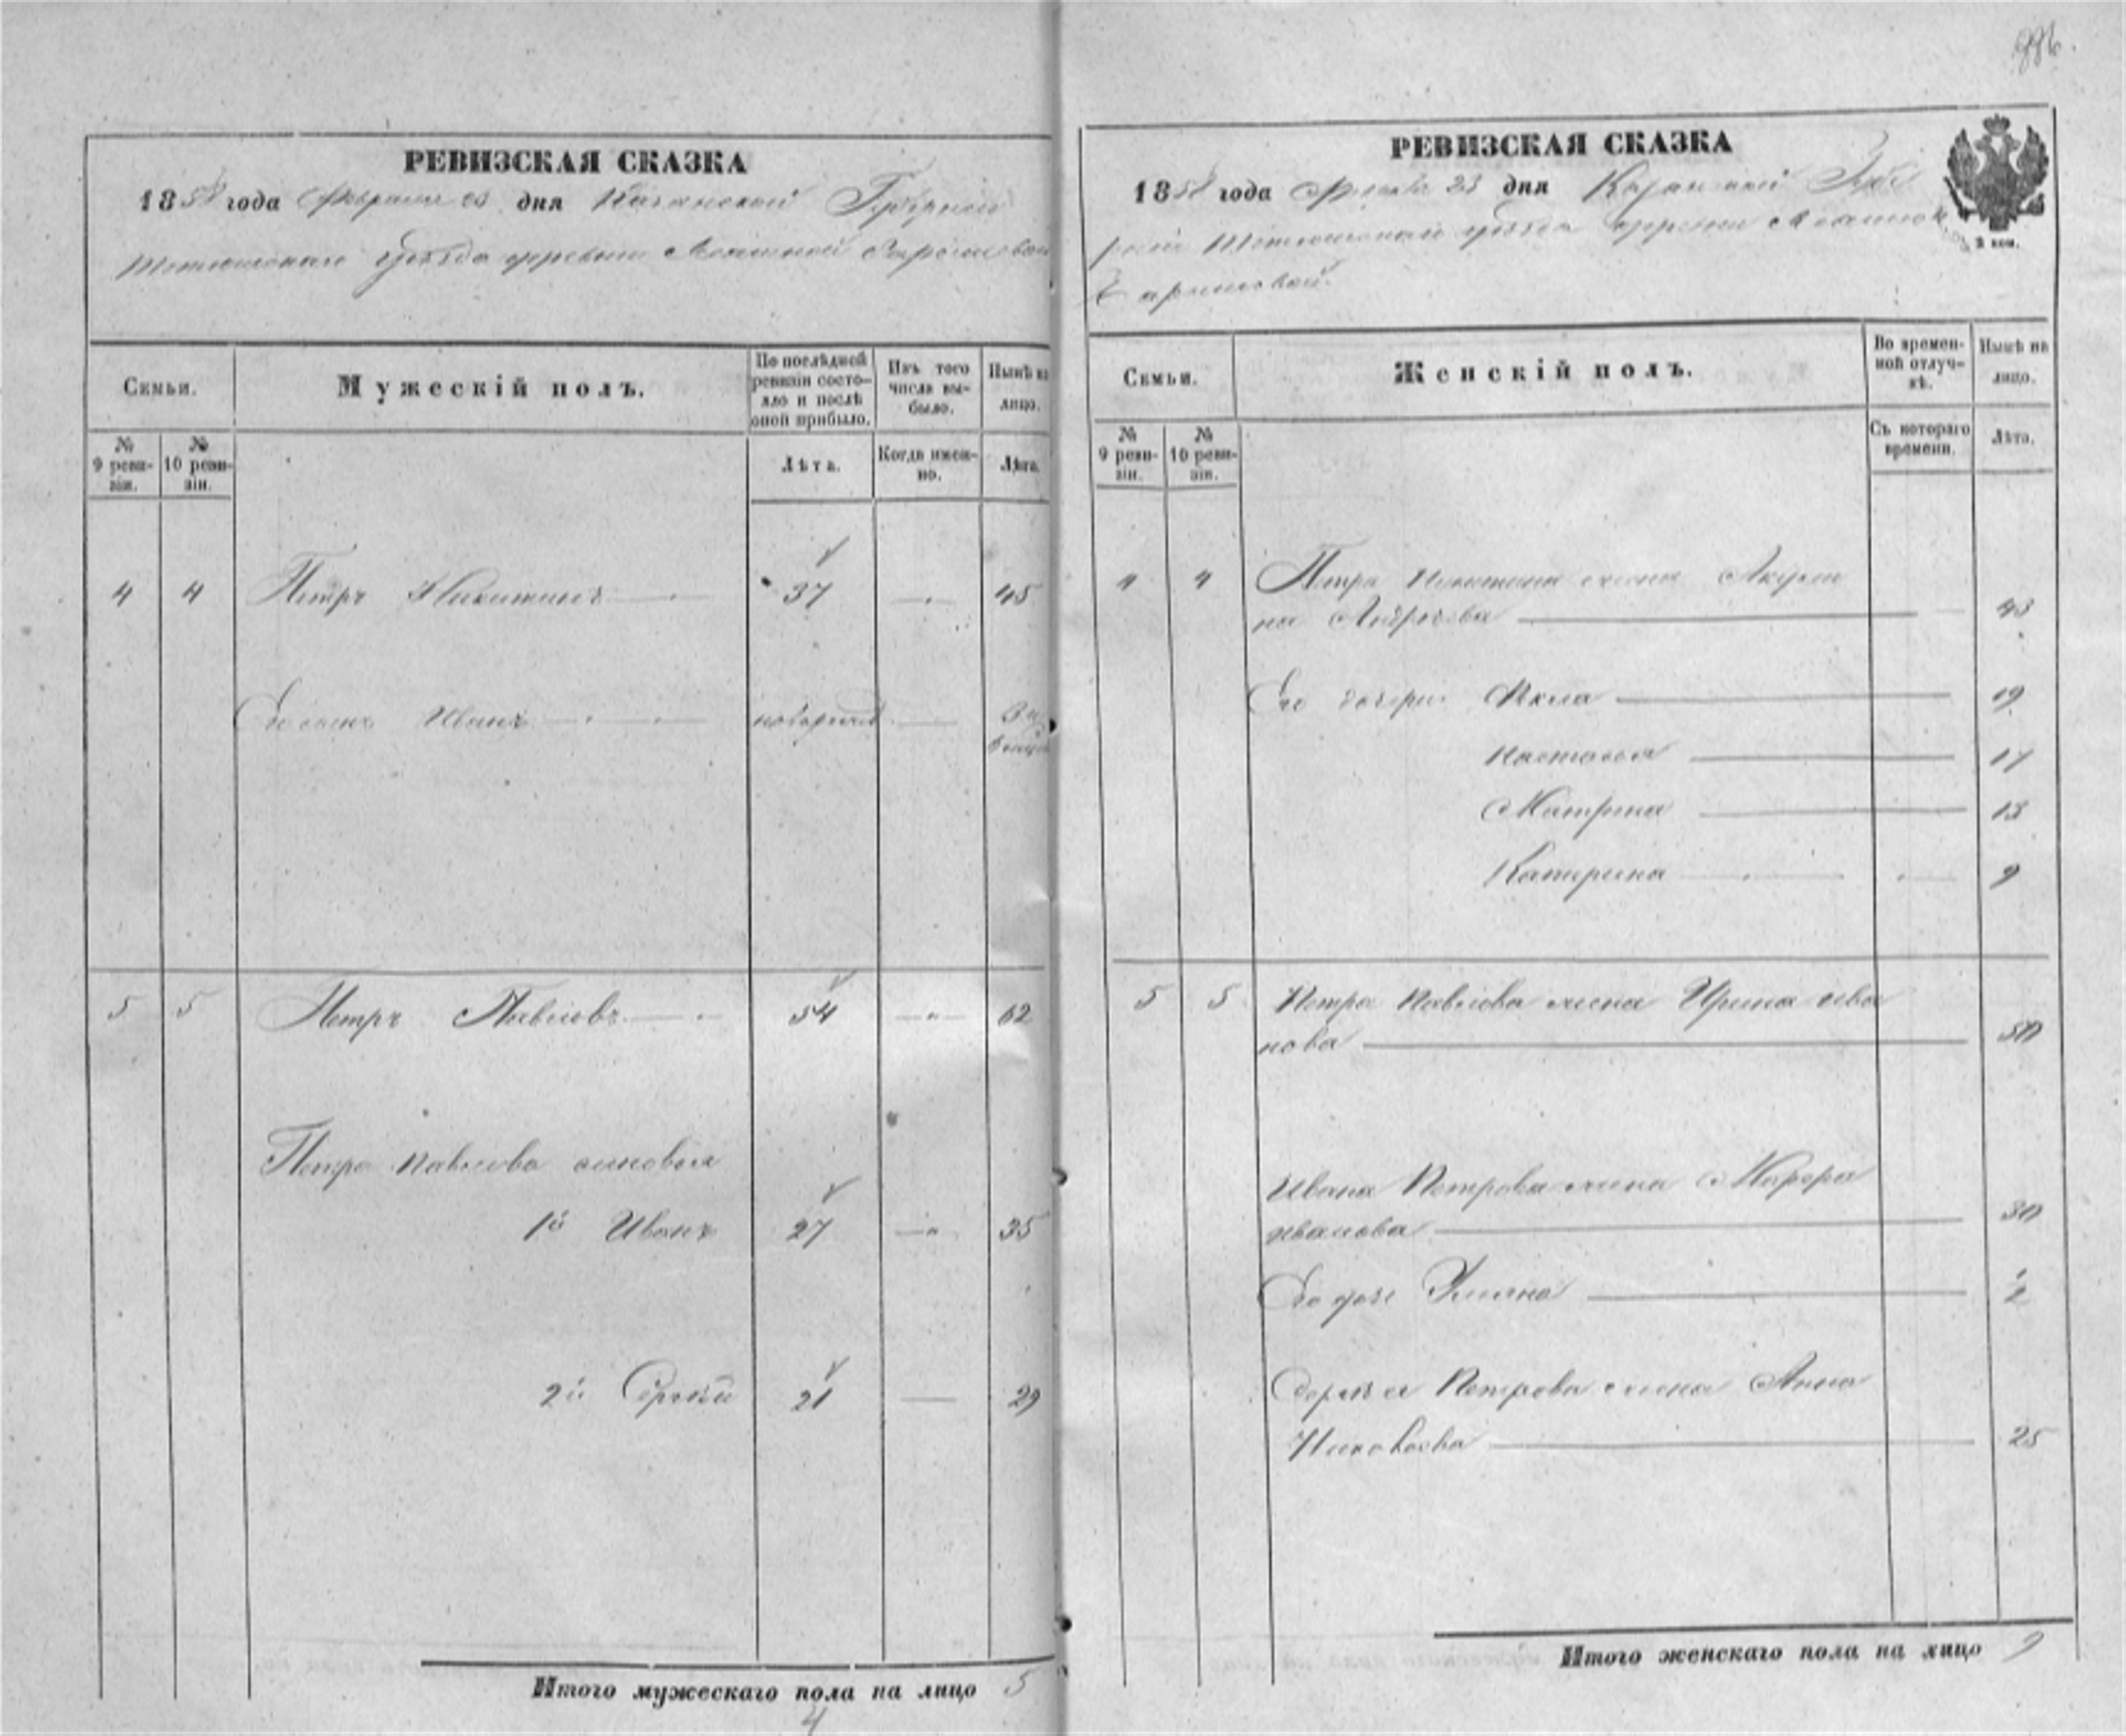 РЕВИЗСКАЯ СКАЗКА
1858 года Февраля 23 дня Казанской Губернии
Тетюшскаго уѣзда деревни
Семьи.
Мужескій полъ.
По послѣдней ревизіи состояло и послѣ оной прибыло.
Изъ того числа выбыло.
Нынѣ на лицо.
№ 9 ревизіи.
№ 10 ревизіи.
Лѣта.
Когда именно.
Лѣта.
4 4 Петръ Никитинъ 37 45
Его сынъ Иванъ
5 5 Петръ Павловъ 54 62
Петра Павлова сыновья
1й Иванъ 27 35
2й Сергѣй 21 29
Итого мужескаго пола на лицо 5
4
РЕВИЗСКАЯ СКАЗКА
1858 года Февраля 23 дня Казанской Губе
рніи Тетюшскаго уѣзда деревни
2 коп.
Семьи.
Женскій полъ.
Во временной отлучкѣ.
Нынѣ на лицо.
№ 9 ревизіи.
№ 10 ревизіи.
Съ котораго времени.
Лѣта.
4 4 Петра Никитина жена Акули
на Андреева 43
Его дочери Фекла 19
Настасья 17
Матрена 13
Катерина 9
5 5 Петра Павлова жена Ирина Ива
нова 50
Ивана Петрова жена Марфа
Иванова 30
Его дочь Ульяна 2
Сергѣя Петрова жена Анна
25
Итого женскаго пола на лицо 9